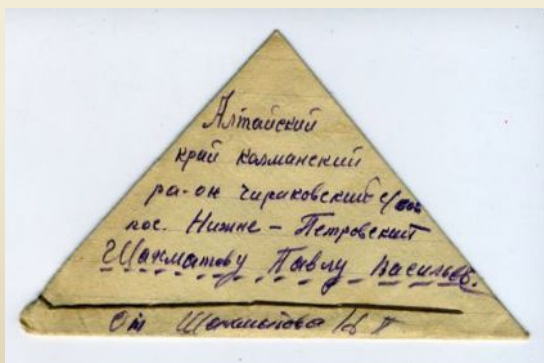 Алтайский
край калманский
ра-он чираковский с/сов
пос. Нижне-Петровский
Шахматову Павлу Васильев.
От Шахматова